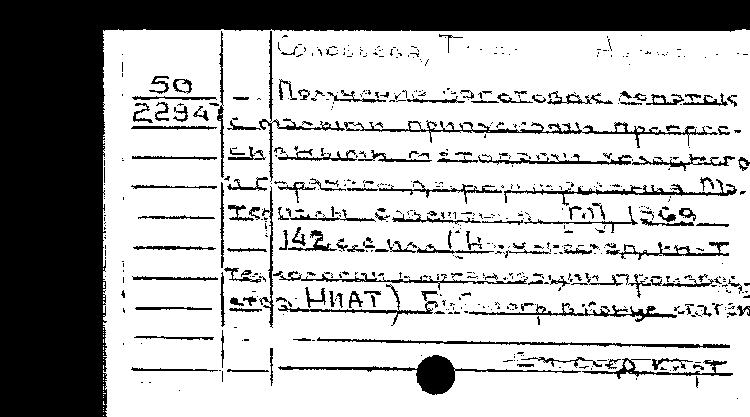 Соловьева,
50
22947
Получение заготовок лопаток
с малыми припусками прогрес-
сивными методами холодного
и горячего деформирования Ма-
териалы совещания. [М], 1969
142 с. с ил. (Научно-исслед. ин-т
технологии и организации производ-
ства НИАТ) Библиогр. в конце статей
См след. кл-т